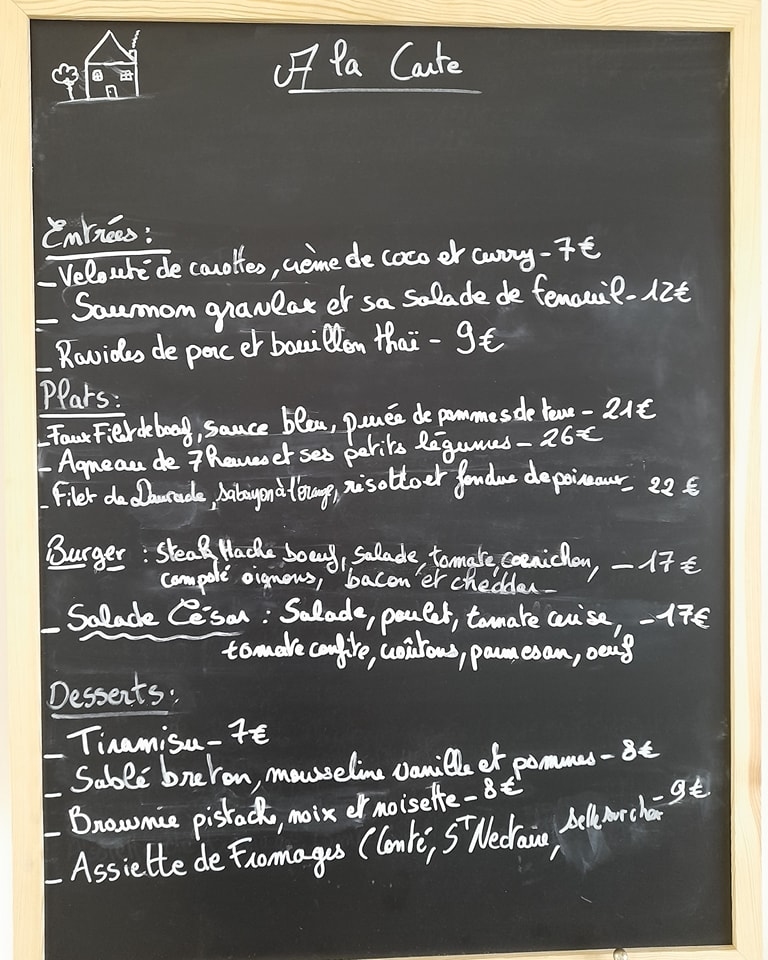 A la Carte
Entrées :
- Velouté de carottes, crème de coco et curry - 7€
- Saumon gravlax et sa salade de fenouil - 12€
- Ravioles de porc et bouillon thaï - 9€
Plats :
- Faux Filet de boeuf, sauce bleu, purée de pommes de terre - 21€
- Agneau de 7 Heures et ses petits légumes - 26€
- Filet de Daurade, sabayon à l'orange, risotto et fondue de poireaux - 22 €
Burger : Steak Haché boeuf, salade, tomate, cornichon, - 17 €
compoté oignons, bacon et cheddar -
- Salade César : Salade, poulet, tomate cerise, - 17€
tomate confite, croûtons, parmesan, oeuf
Desserts :
- Tiramisu - 7€
- Sablé breton, mousseline vanille et pommes - 8€
- Brownie pistache, noix et noisette - 8€
- Assiette de Fromages (Conté, St Nectaire, selle sur cher - 9€